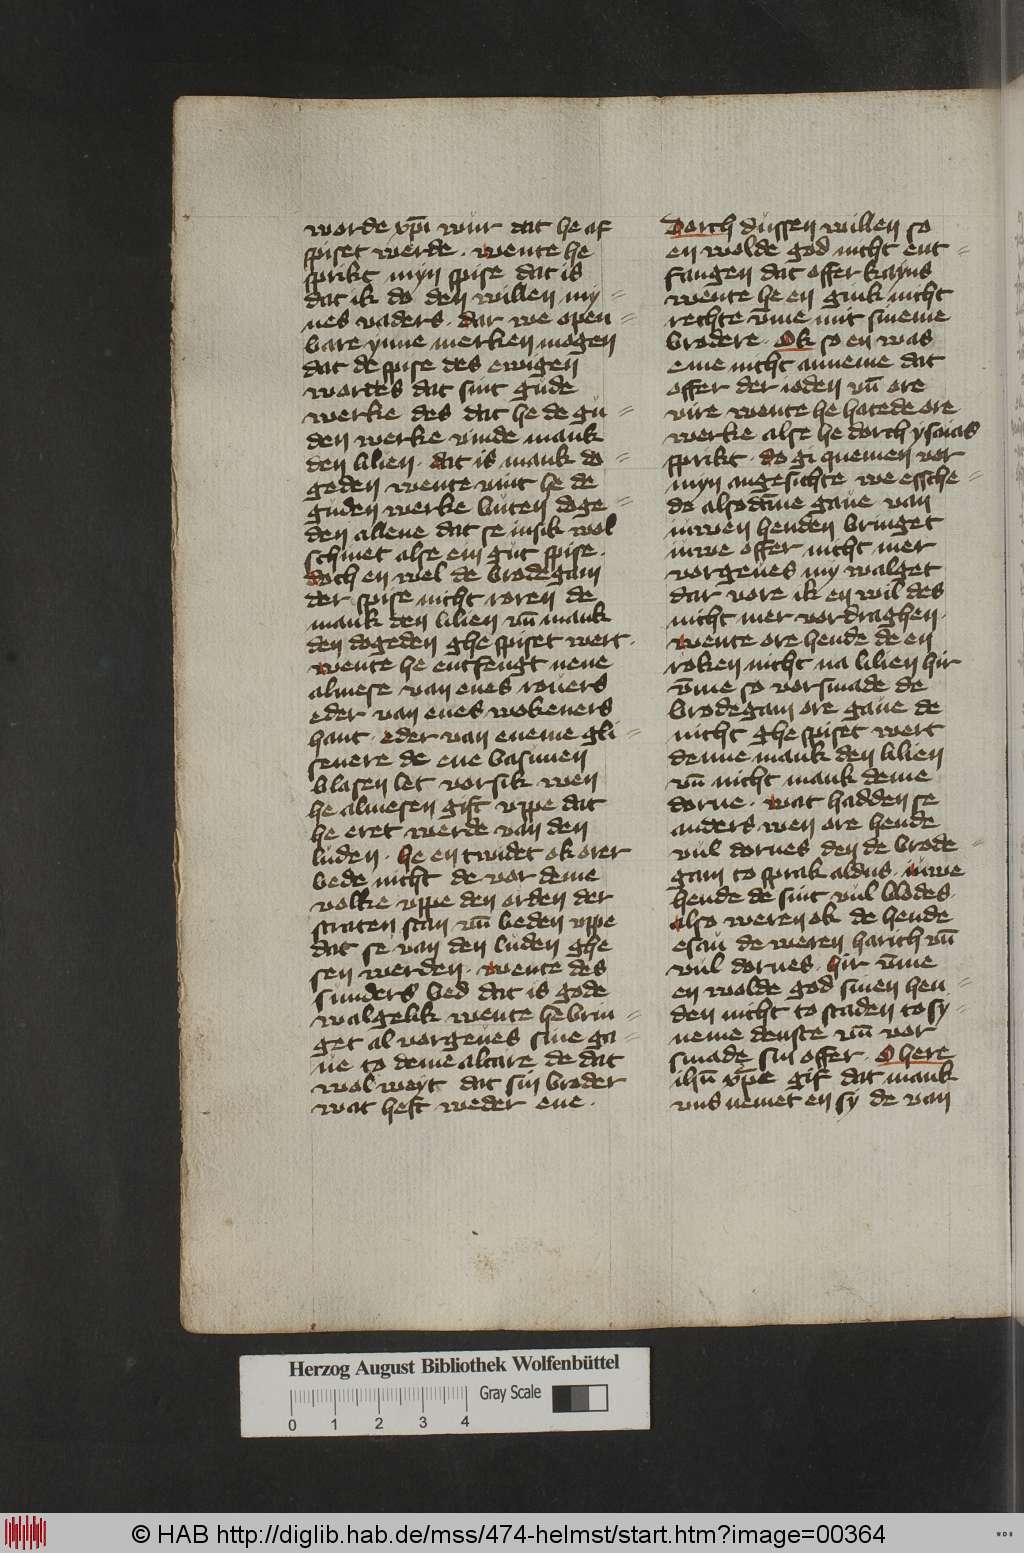 worde xp̄i wur dat he af
spiset werde · wente he
sprikt myn spise dat is
dat ik do den willen my⸗
nes vaders · dar we open⸗
bare ynne merken mogen
dat de spise des ewigen
wordes dat sint gude
werke des dat he de gu⸗
den werke vinde mank
den lilien · dat is mank do⸗
geden wente vint he de
guden werke buten doge⸗
den allene dat se insik wol
schinet alse ein gut spise ·
doch en wel de brodegam
der spise nicht roren de
mank den lilien vn̄ mank
den dogeden ghe spiset wert ·
wente he entfengt nene
almese van enes rouers
eder van enes wokeners
hant · eder van eneme gli⸗
senere de ene basunen
blasen let vorsik wen
he almesen gift vppe dat
he eret werde van den
luden · he en twidet ok orer
bede nicht de vor deme
volke vppe den orden der
straten stan vn̄ beden vppe
dat se van den luden ghe
sen werden · wente des
sunders bed dat is gode
walgelik wente he brin⸗
get al vorgeues sine ga⸗
ue to deme altare de dat
wol weyt dat sin broder
wat heft weder ene ·
Dorch dussen willen so
en wolde god nicht ent⸗
fangen dat offer kayns
wente he en gink nicht
rechte v̄me mit sineme
brodere · Ok so en was
eme nicht anneme dat
offer der ioden vn̄ ore
vire wente he hatede ore
werke alse he dorch ysaias
sprikt · do gi quemen vor
myn angesichte we essche⸗
de alsodāne gaue van
iuwen henden bringet
iuwe offer nicht mer
vorgeues my walget
dar vore ik en wil des
nicht mer vordraghen ·
wente ore hende de en
roken nicht na lilien hir
v̄me so vorsmade de
brodegam ore gaue de
nicht ghe spiset wert
denne mank den lilien
vn̄ nicht mank deme
dorne · wat hadden se
anders wen ore hende
vul dornes den de brode⸗
gam to sprak aldus · iuwe
hende de sint vul blodes ·
also weren ok de hende
esau de weren harich vn̄
vul dornes · hir v̄me
en wolde god sinen hen⸗
den nicht to staden to sy⸗
neme denste vn̄ vor
smade sin offer · O here
ihū xp̄e gif dat mank
vns nemet en sy de van
Herzog August Bibliothek Wolfenbüttel
Gray Scale
0 1 2 3 4
© HAB http://diglib.hab.de/mss/474-helmst/start.htm?image=00364